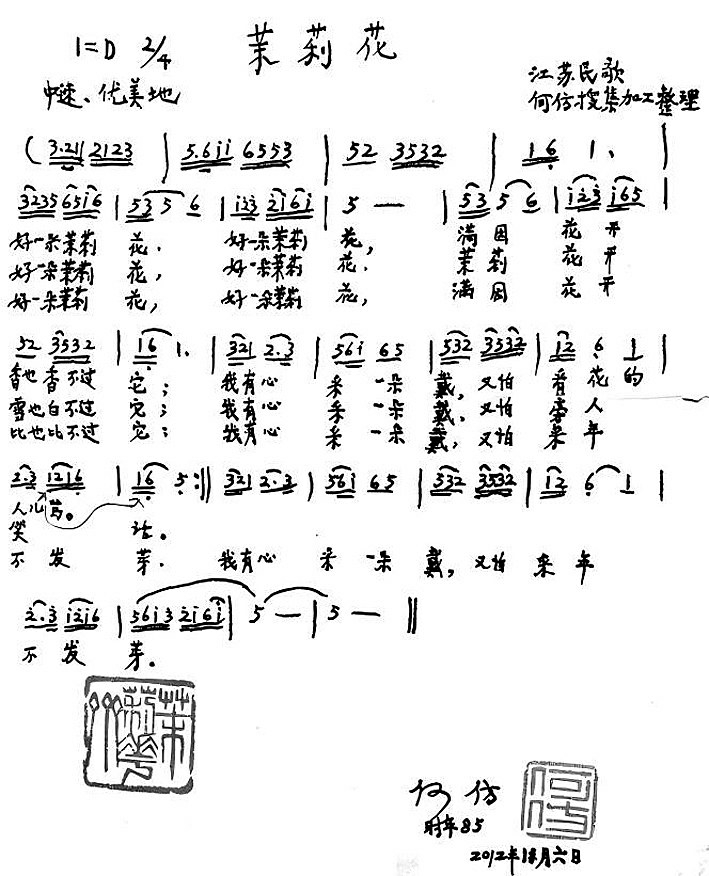 1=D 2/4 茉莉花
中速、优美地
江苏民歌
何仿搜集加工整理
( 3.211 2123 | 5.6ii 6553 | 52 3532 | 16 1. |
3235 65i6 | 53 5 6 | i23 2i6i | 5 — | 53 5 6 | i23 i65 |
好一朵茉莉 花, 好一朵茉莉 花, 满园 花开
好一朵茉莉 花, 好一朵茉莉 花, 茉莉 花开
好一朵茉莉 花, 好一朵茉莉 花, 满园 花开
52 3532 | 16 1. | 321 2.3 | 56i 65 | 532 3532 | 12 6 1 |
香也香不过 它; 我有心 采一朵 戴, 又怕 看花的
雪也白不过 它; 我有心 采一朵 戴, 又怕 旁人
比也比不过 它; 我有心 采一朵 戴, 又怕 来年
2.3 1216 | 16 5 :|| 321 2.3 | 56i 65 | 332 3532 | 12 6 1 |
人儿 骂。
笑 话。
不发 芽. 我有心 采一朵 戴, 又怕 来年
2.3 i2i6 | 56i3 2i6i | 5 — | 5 — ||
不发 芽。
茉莉花
何仿
何仿
时年85